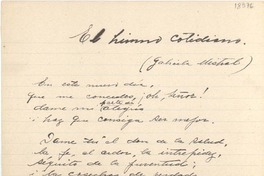 El himno cotidiano.
(Gabriela Mistral)
En este nuevo día,
que me concedes, ¡oh, Señor!
dame mi parte de alegría
i haz que consiga ser mejor.
Dame Tú el don de la salud,
la fe, el ardor, la intrepidez,
séquito de la juventud;
i la cosecha de verdad